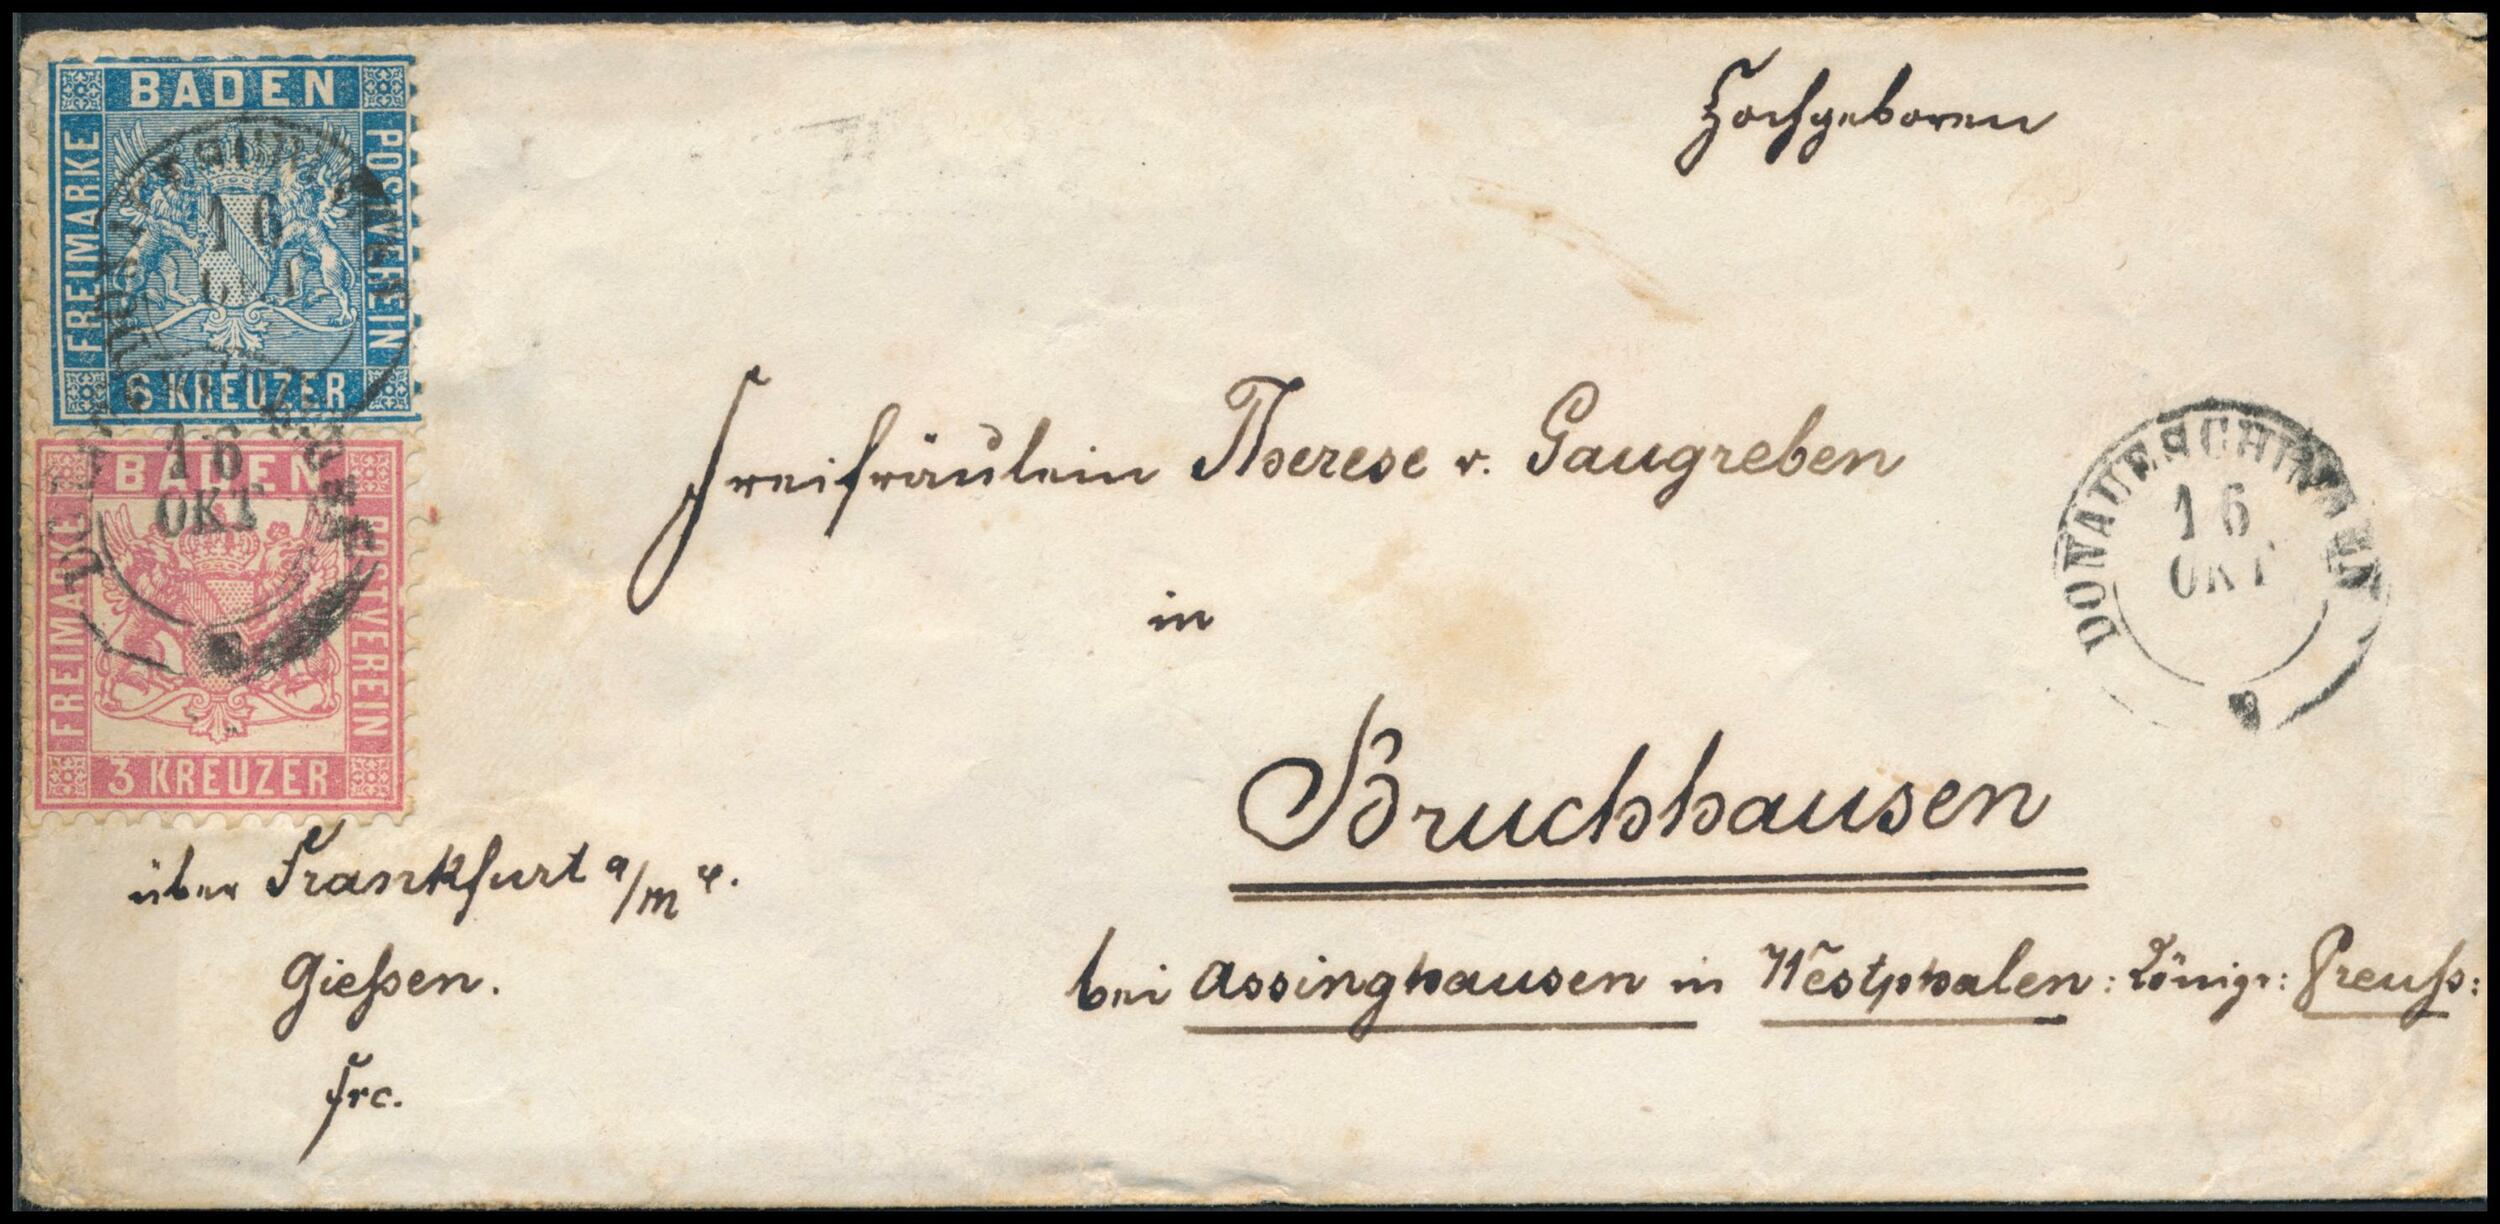 BADEN
FREIMARKE
POSTVEREIN
6 KREUZER
16
OKT
BADEN
FREIMARKE
POSTVEREIN
3 KREUZER
16
OKT
Hochgeboren
Freifräulein Therese v. Gaugreben
in
Bruchhausen
bei Assinghausen in Westphalen: Königr: Preuß:
über Frankfurt a/M
Gießen.
frc.
DONAUESCHINGEN
16
OKT